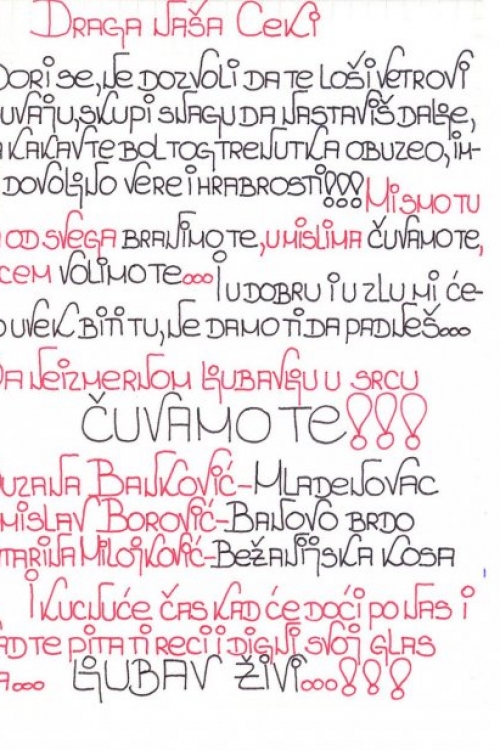 DRAGA NAŠA CEKI
BORI SE, NE DOZVOLI DA TE LOŠI VETROVI
UVAJU, SKUPI SNAGU DA NASTAVIŠ DALJE,
KAKAV TE BOL TOG TRENUTKA OBUZEO, IM-
DOVOLJNO VERE I HRABROSTI!!! MI SMO TU
OD SVEGA BRANIMO TE, U MISLIMA ČUVAMO TE,
CEM VOLIMO TE.... I U DOBRU I U ZLU MI ĆE-
UVEK BITI TU, NE DAMO TI DA PADNEŠ....
NEIZMERNOM LJUBAVLJU U SRCU
ČUVAMO TE!!!
UZANA BANKOVIĆ-MLADENOVAC
MISLAV BOROVIĆ-BANOVO BRDO
TARINA MILOJKOVIĆ-BEŽANIJSKA KOSA
I KUCNUĆE ČAS KAD ĆE DOĆI PO NAS I
AD TE PITA TI RECI I DIGNI SVOJ GLAS
A.... LJUBAV ŽIVI....!!!